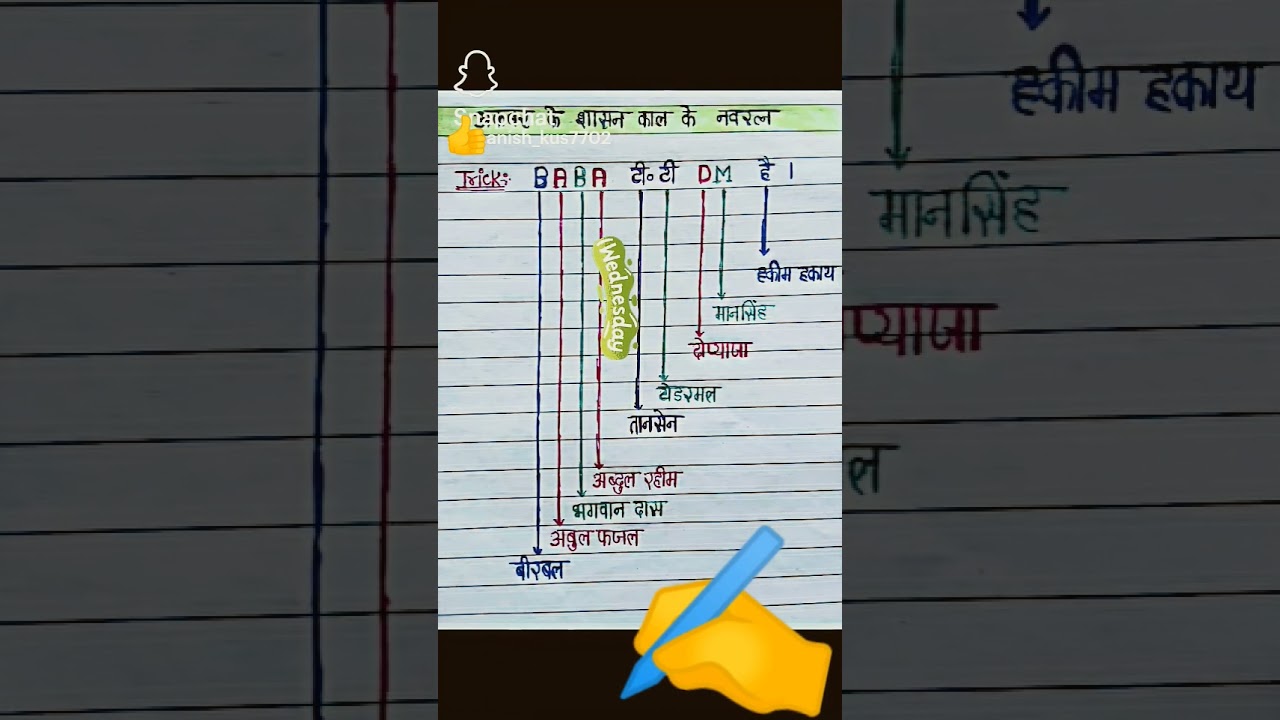 anish_kus7702
के शासन काल के नवरत्न
Trick:- BABA टी॰टी DM है ।
Wednesday
हकीम हकाय
मानसिंह
दोप्याजा
टोडरमल
तानसेन
अब्दुल रहीम
भगवान दास
अबुल फजल
बीरबल
हकीम हकाय
मानसिंह
प्याजा
ल